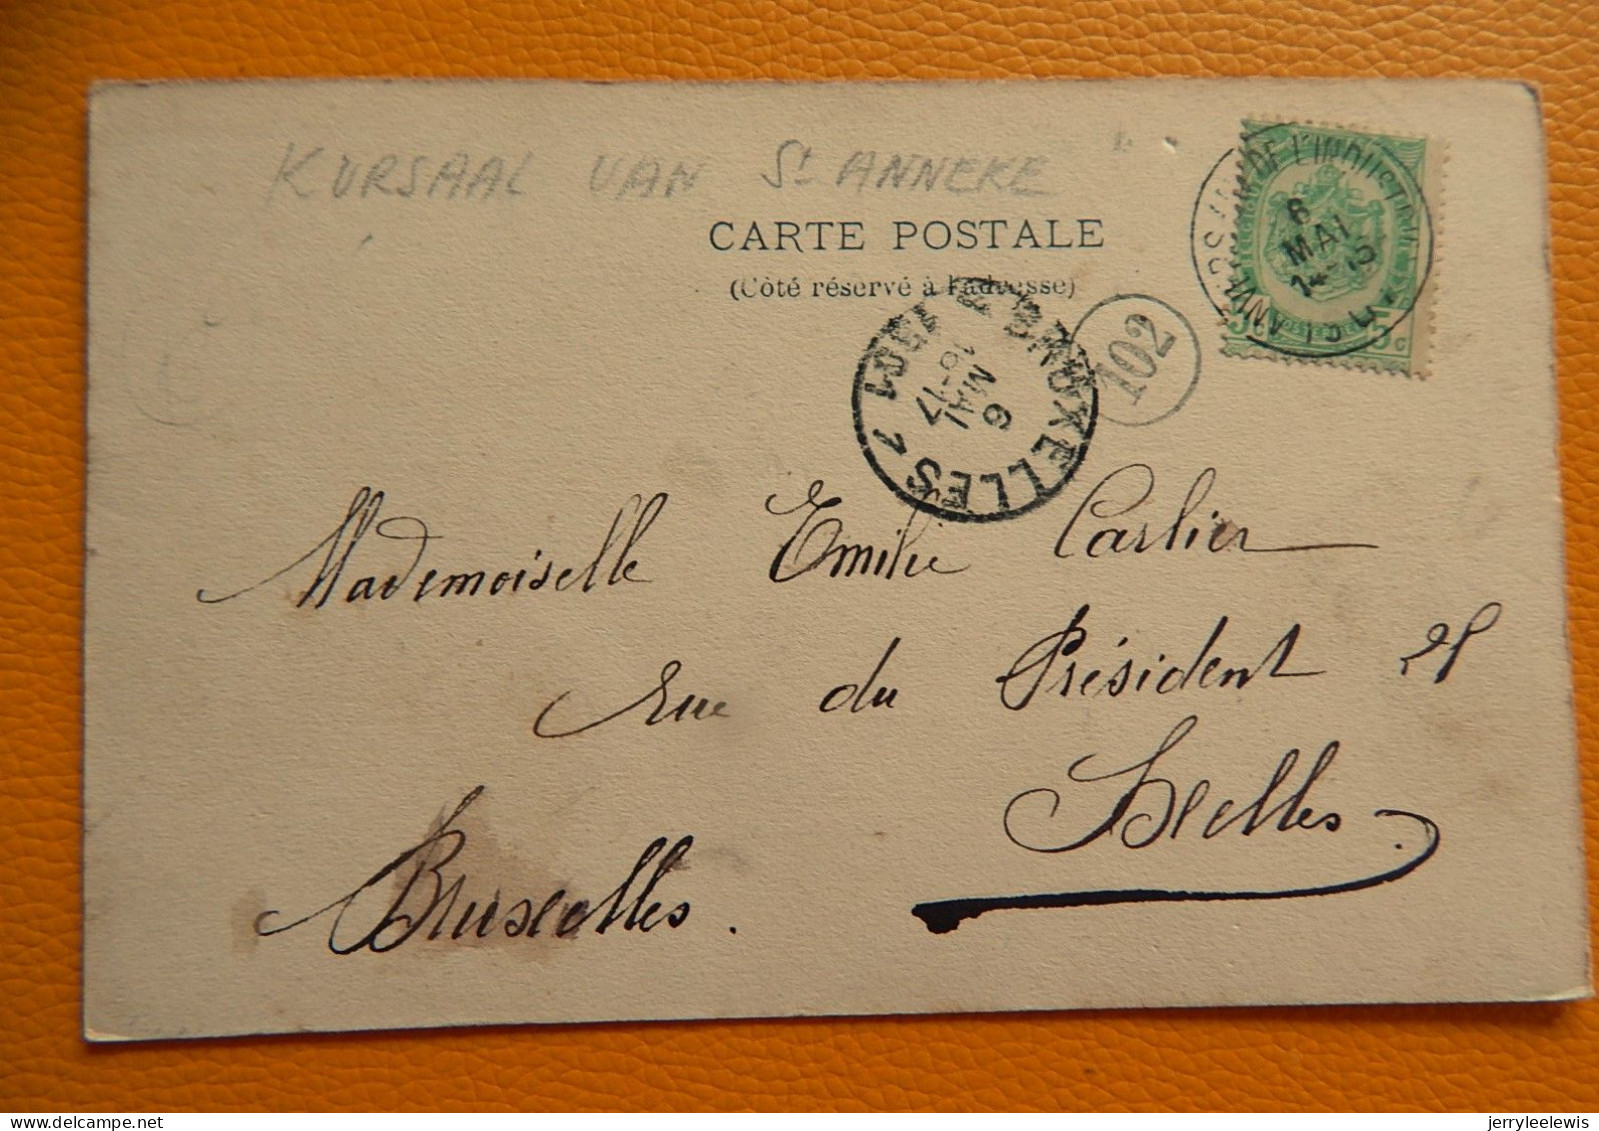 KURSAAL VAN St ANNEKE
CARTE POSTALE
(Côté réservé à l'adresse)
DE L'INDUSTRIE
6
MAI
14-15
5c 5c
102
BRUXELLES 1
1901
16-17
MAI
6
Mademoiselle Emilie Carlier
rue du Président
Ixelles.
Bruxelles.
delcampe.net
jerryleelewis